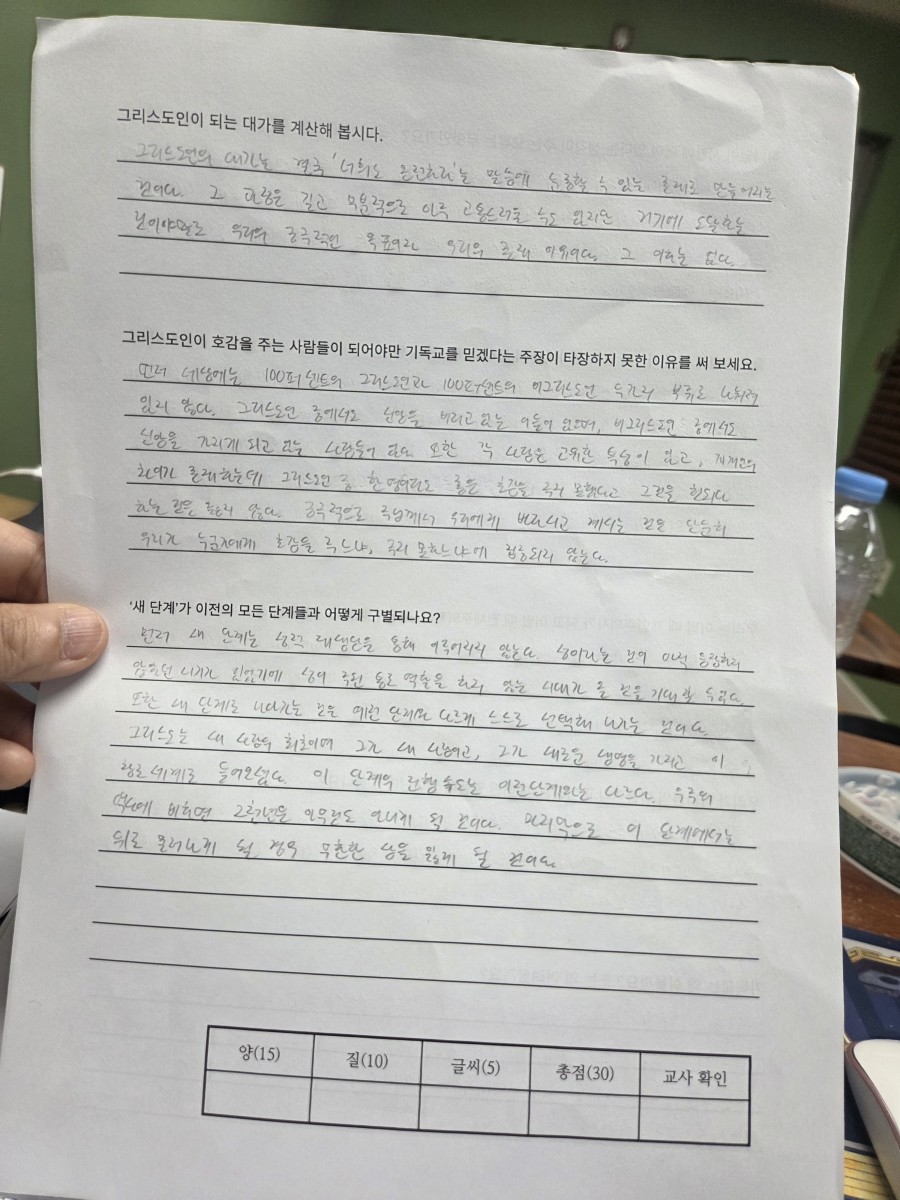 그리스도인이 되는 대가를 계산해 봅시다.
그리스도인의 대가는 결국 '너희도 온전하라'는 말씀에 순종할 수 있는 존재로 만들어지는
것이다. 그 과정은 길고 부분적으로 아주 고통스러울 수도 있지만 거기에 도달하는
것이야말로 우리의 궁극적인 목표이자 우리의 존재 이유이다. 그 이하는 없다.
그리스도인이 호감을 주는 사람들이 되어야만 기독교를 믿겠다는 주장이 타당하지 못한 이유를 써 보세요.
먼저 세상에는 100퍼센트의 그리스도인과 100퍼센트의 비그리스도인 두가지 부류로 나눠져
있지 않다. 그리스도인 중에서도 신앙을 버리고 있는 이들이 있으며, 비그리스도인 중에서도
신앙을 가지게 되고 있는 사람들이 있다. 또한 각 사람은 고유한 특성이 있고, 개개인의
차이가 존재하는데 그리스도인 중 한명이라도 좋은 호감을 주지 못했다고 그것을
하는 것은 옳지 않다. 궁극적으로 주님께서 우리에게 바라시고 계시는 것은 단순히
우리가 누군가에게 호감을 주느냐, 주지 못하느냐에 집중되지 않는다.
'새 단계'가 이전의 모든 단계들과 어떻게 구별되나요?
먼저 새 단계는 성적 재생산을 통해 이루어지지 않는다. 성이라는 것이 아직 등장하지
않았던 시기가 있었기에 성이 주된 통로 역할을 하지 않는 시대가 올 것을 기대할 수 있다.
또한 새 단계로 나아가는 것은 예전 단계와 다르게 스스로 선택해 나가는 것이다.
그리스도는 새 사람의 최초이며 그가 새 사람이고, 그가 새로운 생명을 가지고 이
세계로 들어오셨다. 이 단계의 진행 속도는 이전단계와는 다르다. 우주의
역사에 비하면 2천년은 아무것도 아니게 될 것이다. 마지막으로 이 단계에서는
뒤로 물러나게 될 경우 무한한 상을 잃게 될 것이다.
양(15) 질(10) 글씨(5) 총점(30) 교사 확인